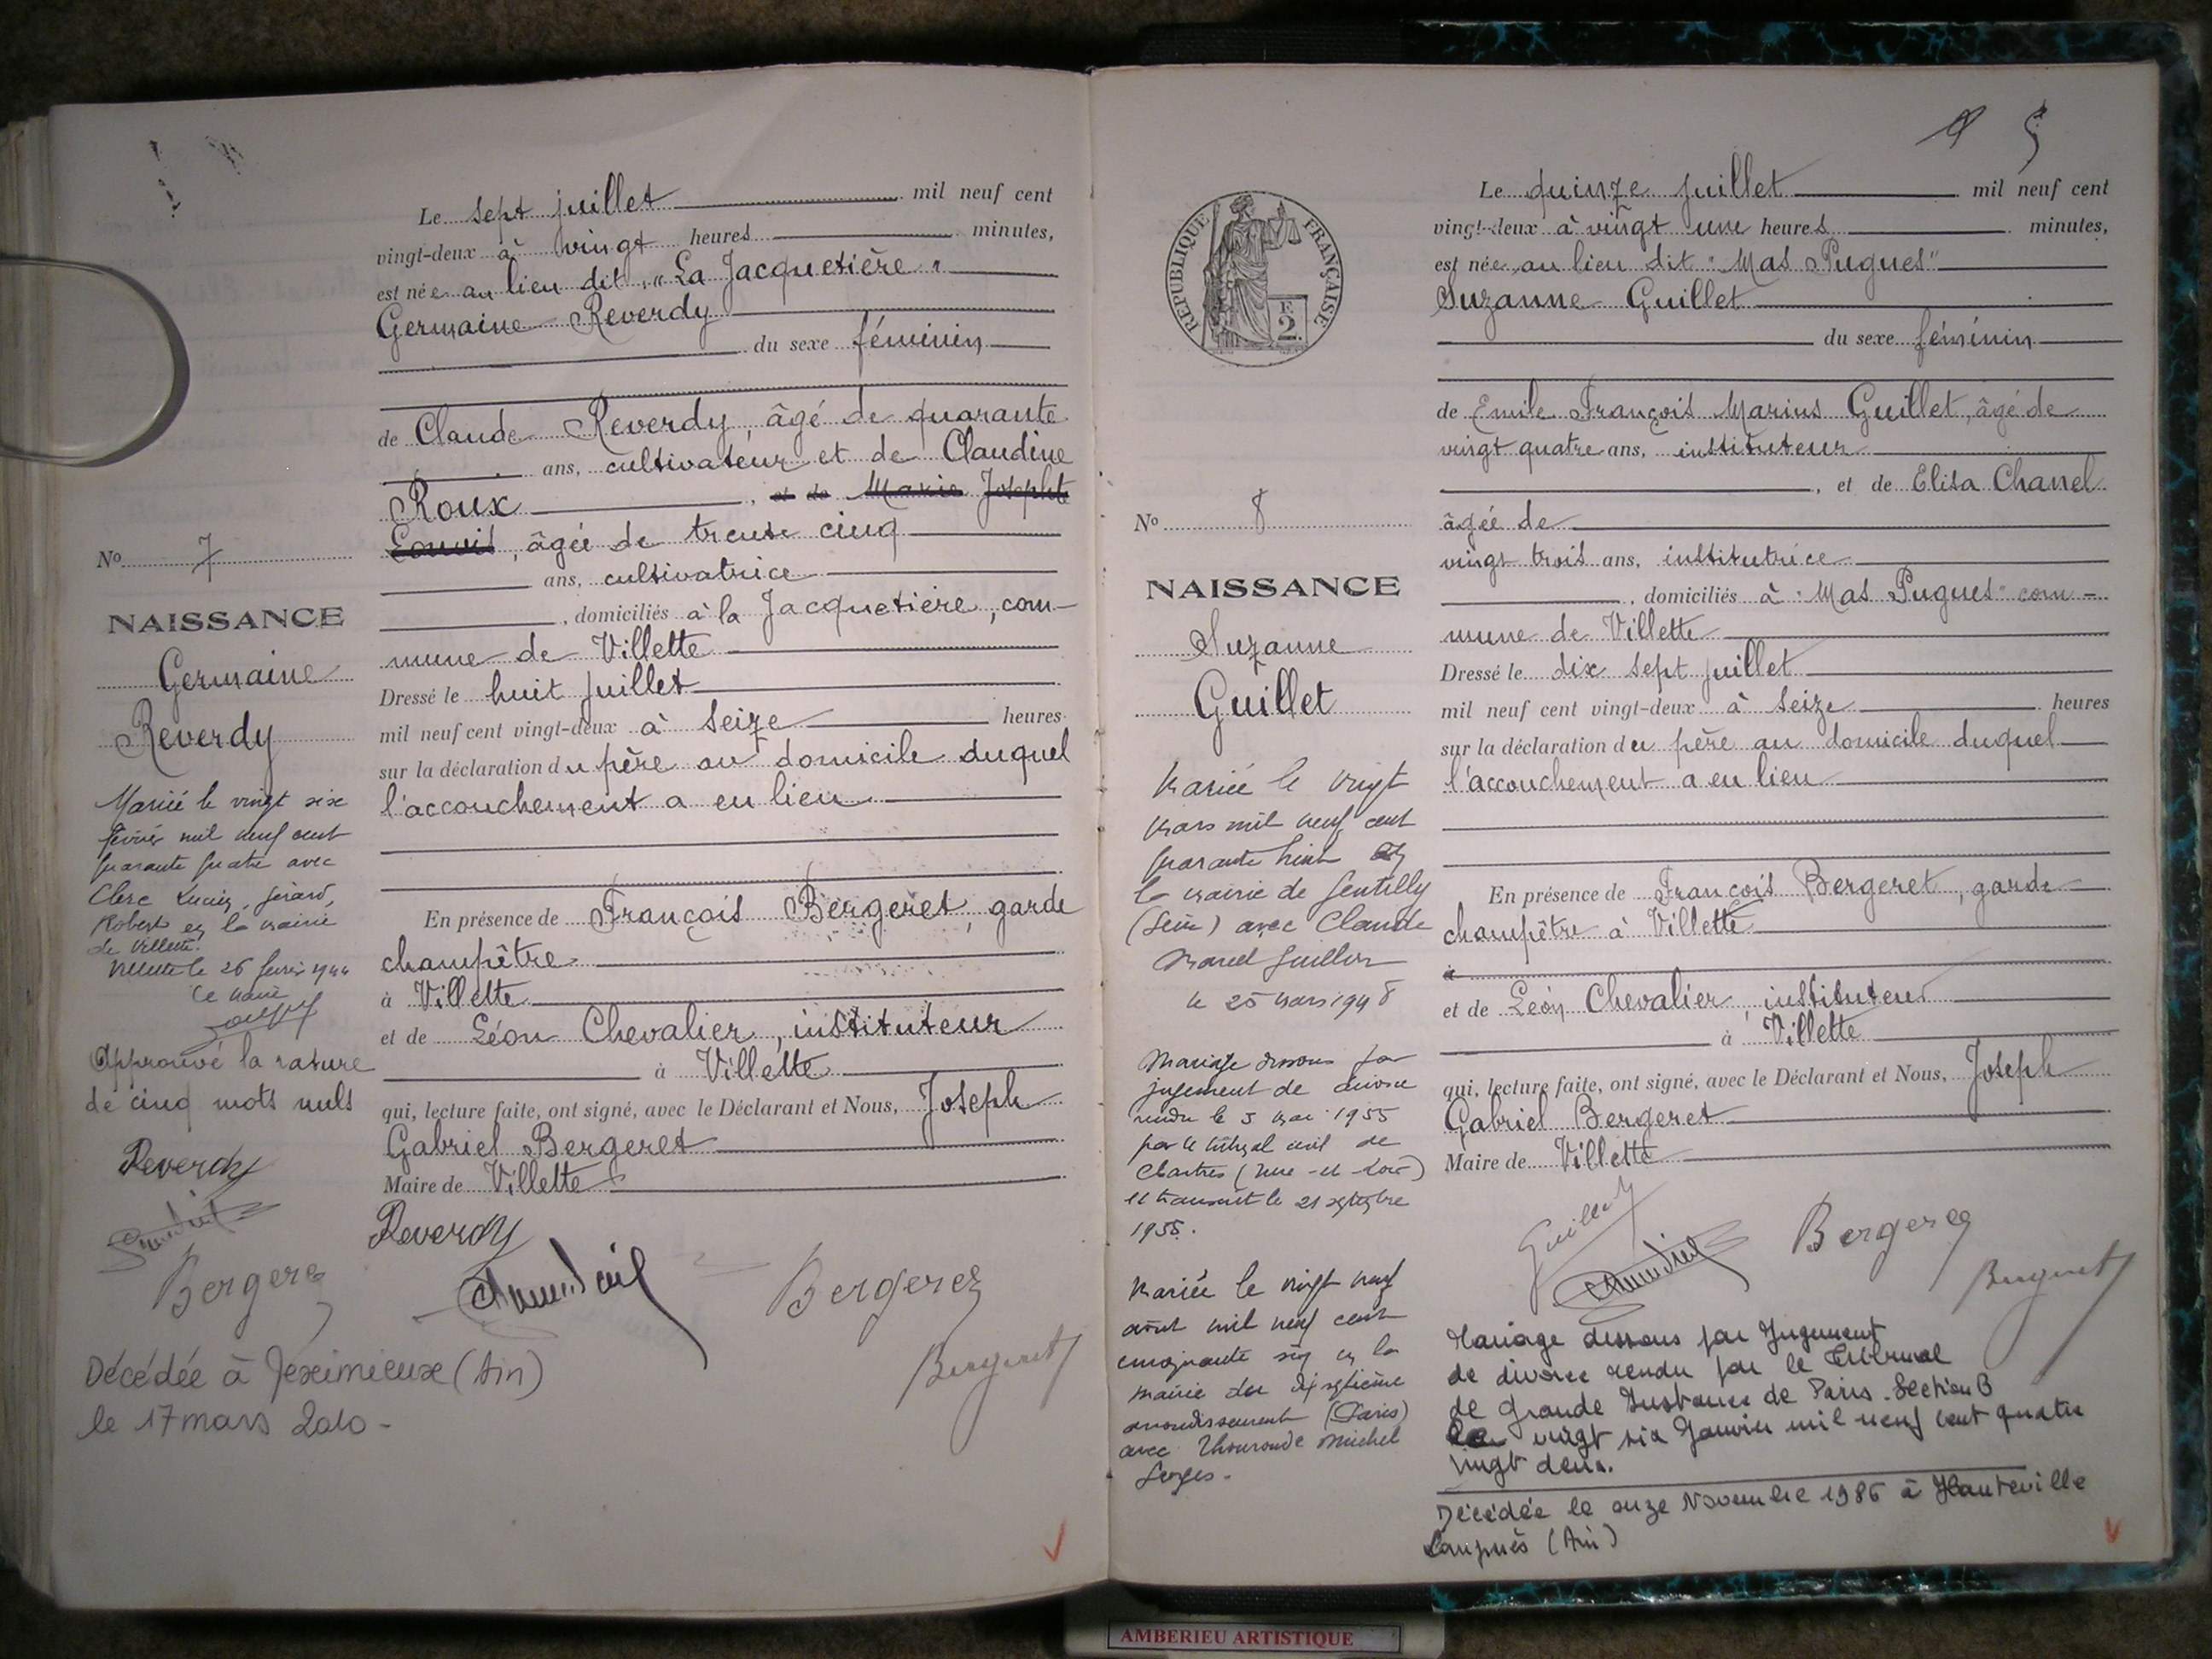 Le sept juillet mil neuf cent
vingt-deux à vingt heures minutes,
est née au lieu dit "La Jacquetière"
Germaine Reverdy
du sexe féminin
de Claude Reverdy, âgé de quarante
ans, cultivateur et de Claudine
Roux, et de Marie Josephte
âgée de trente cinq
ans, cultivatrice
, domiciliés à la Jacquetière, com-
mune de Villette
Dressé le huit juillet
mil neuf cent vingt-deux à seize heures
sur la déclaration du père au domicile duquel
l'accouchement a eu lieu
En présence de François Bergeret, garde
champêtre
à Villette
et de Léon Chevalier, instituteur
à Villette
qui, lecture faite, ont signé, avec le Déclarant et Nous, Joseph
Gabriel Bergeret
Maire de Villette
Reverdy
Bergeret
Bergeret
No 7
NAISSANCE
Germaine
Reverdy
Mariée le vingt six
février mil neuf cent
quarante quatre avec
Clerc Lucien, Gérard,
Robert en la mairie
de Villette.
Villette le 26 février 1944
Le maire
Approuvé la rature
de cinq mots nuls
Reverdy
Bergeret
Décédée à Meximieux (Ain)
le 17 mars 2010 -
5
RÉPUBLIQUE FRANÇAISE
F.
2.
No 8
NAISSANCE
Suzanne
Guillet
Mariée le vingt
mars mil neuf cent
quarante huit en
la mairie de Gentilly
(Seine) avec Claude
Marcel Guillon
le 25 mars 1948
Mariage dissous par
jugement de divorce
rendu le 5 mai 1955
par le tribunal civil de
Chartres (Eure-et-Loir)
et transcrit le 21 septembre
1955.
Mariée le vingt neuf
août mil neuf cent
cinquante six en la
mairie du dix septième
arrondissement (Paris)
avec Michel
Georges -
Le quinze juillet mil neuf cent
vingt-deux à vingt une heures minutes,
est née au lieu dit "Mas Pugues"
Suzanne Guillet
du sexe féminin
de Emile François Marius Guillet, âgé de
vingt quatre ans, instituteur
, et de Elisa Chanel
âgée de
vingt trois ans, institutrice
, domiciliés à "Mas Pugues" com-
mune de Villette
Dressé le dix sept juillet
mil neuf cent vingt-deux à seize heures
sur la déclaration du père au domicile duquel
l'accouchement a eu lieu
En présence de François Bergeret, garde
champêtre à Villette
à
et de Léon Chevalier, instituteur
à Villette
qui, lecture faite, ont signé, avec le Déclarant et Nous, Joseph
Gabriel Bergeret
Maire de Villette
Guillet
Bergeret
Bergeret
Mariage dissous par Jugement
de divorce rendu par le Tribunal
de Grande Instance de Paris. Section B
le vingt six Janvier mil neuf cent quatre
vingt deux.
Décédée le onze Novembre 1986 à Hauteville
Lompnès (Ain)
AMBERIEU ARTISTIQUE